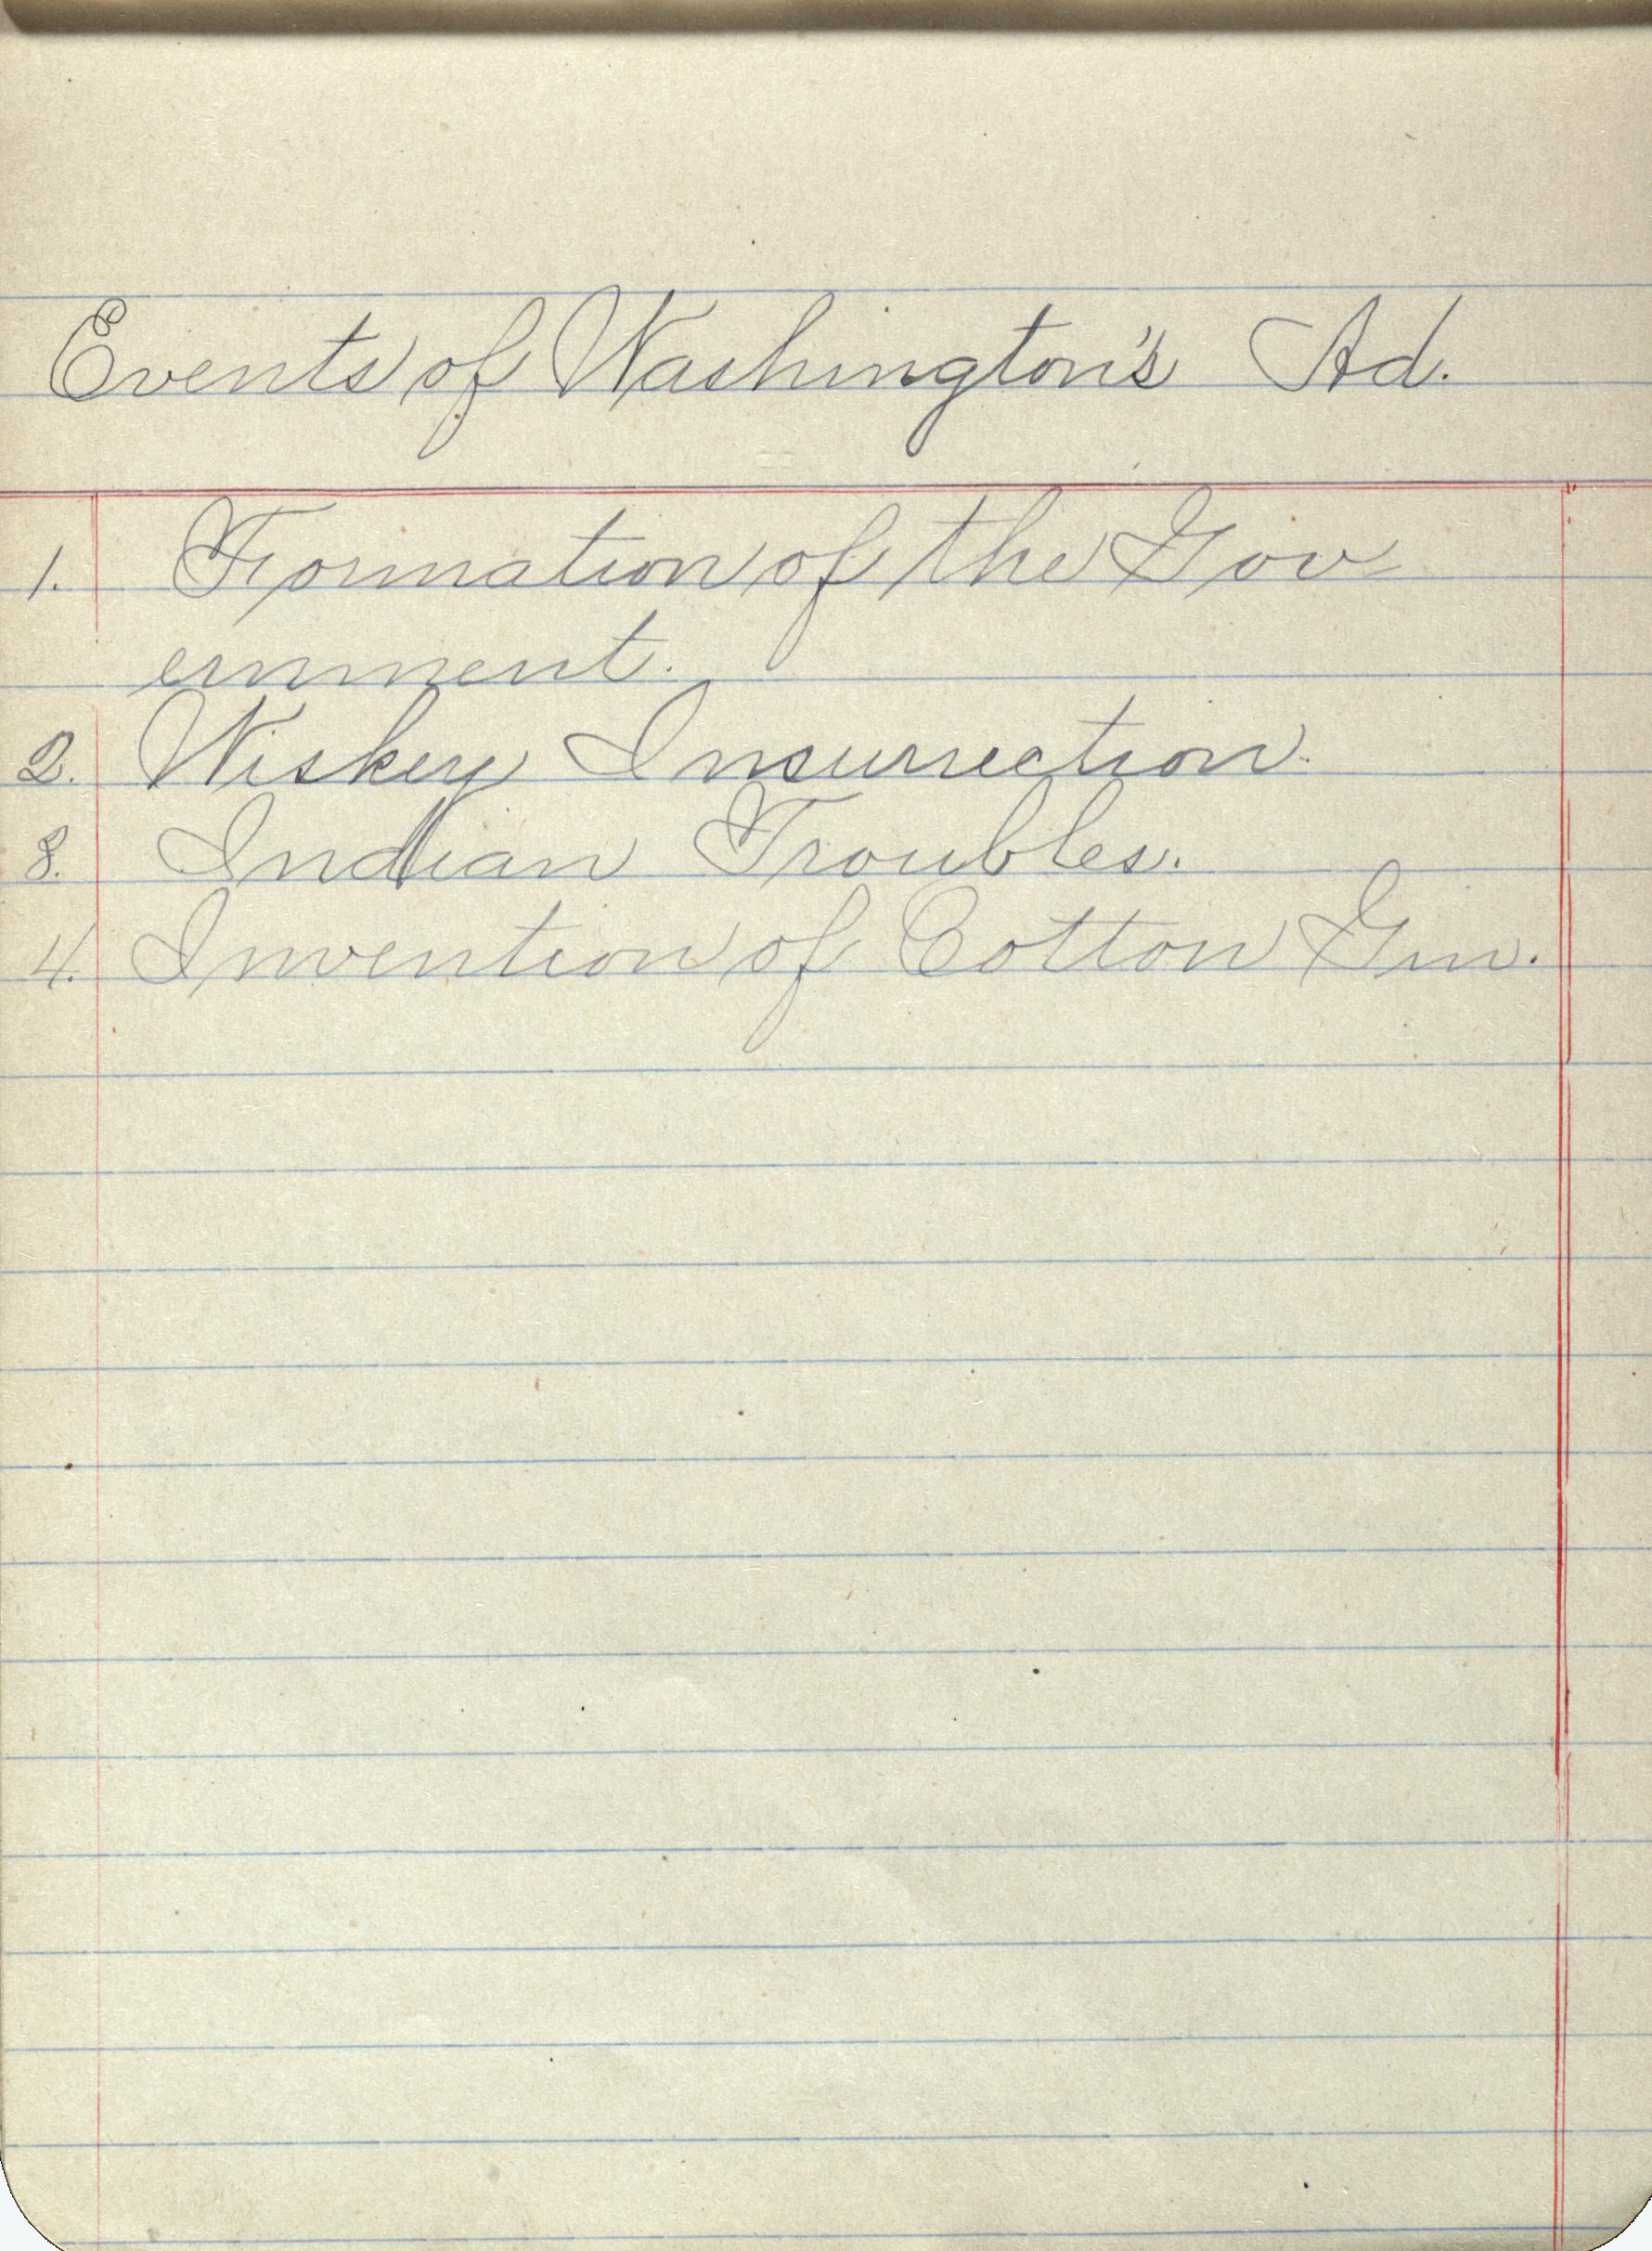 Events of Washington's Ad.
1. Formation of the Gov-
ernment.
2. Wiskey Insurrection.
3. Indian Troubles.
4. Invention of Cotton Gin.